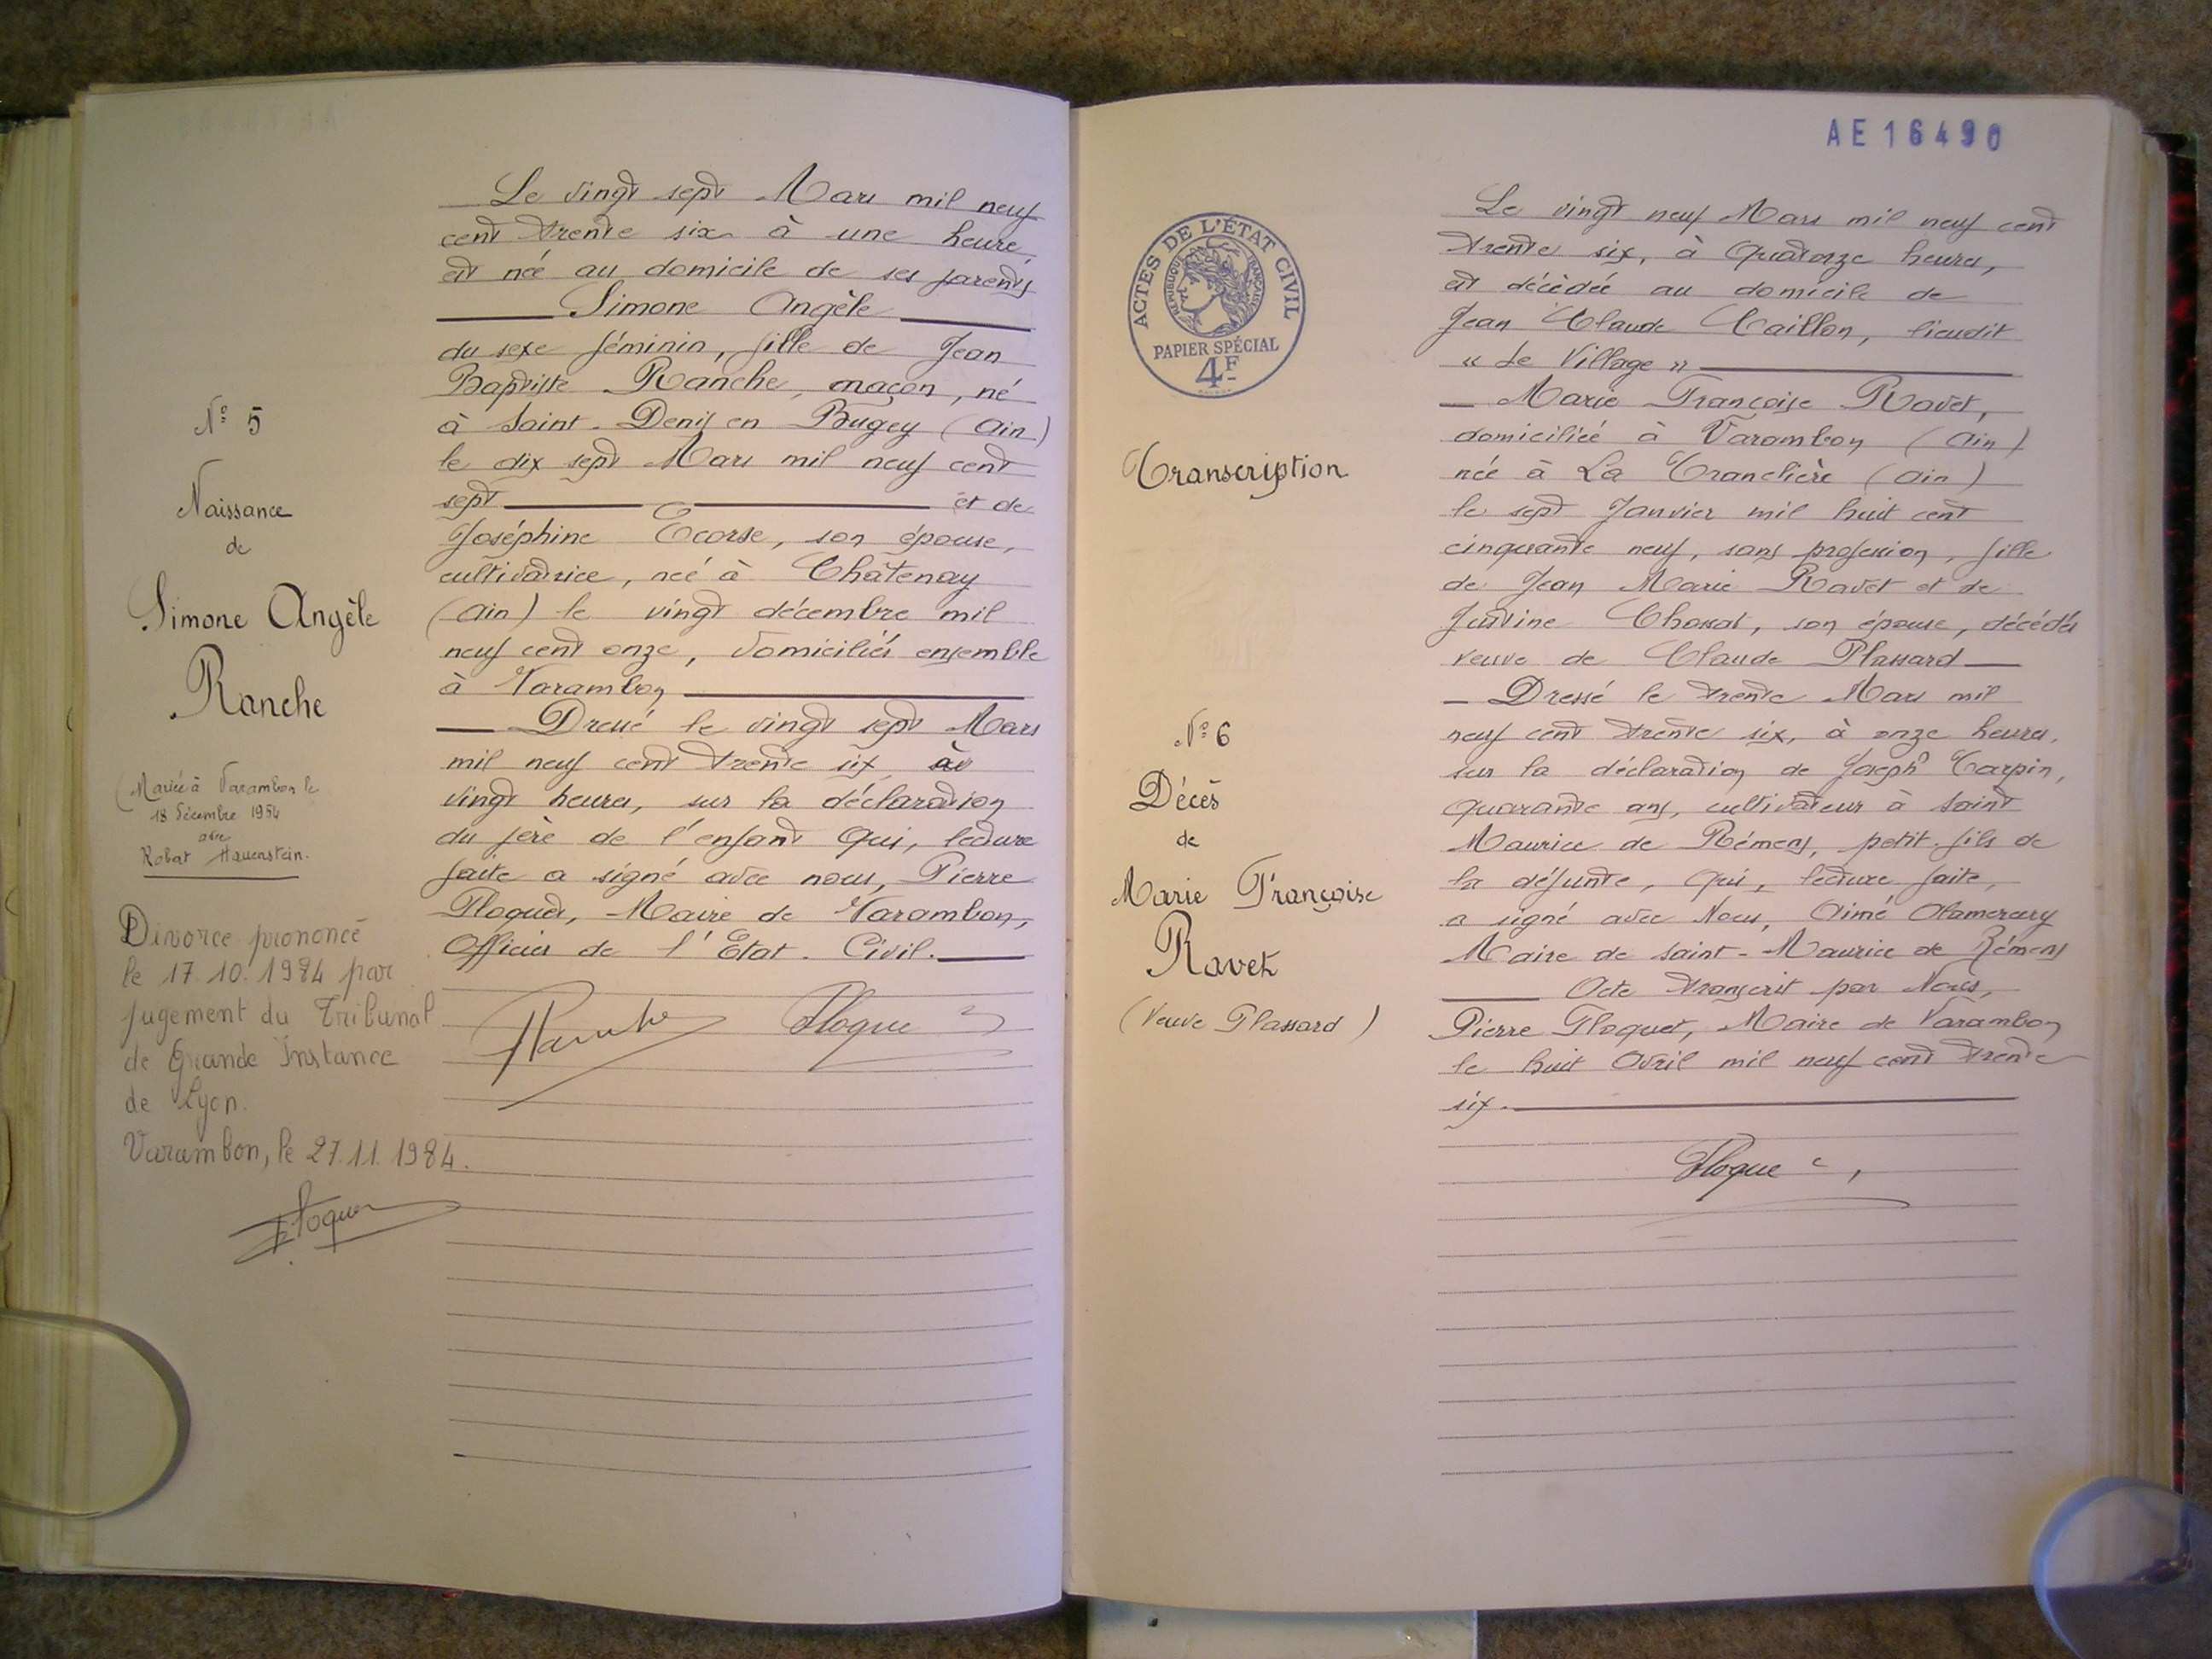 N° 5
Naissance
de
Simone Angèle
Ranche
(Mariée à Varambon le
18 Décembre 1954
avec
Robert Hauenstein.
Divorce prononcé
le 17.10.1984 par
jugement du Tribunal
de Grande Instance
de Lyon.
Varambon, le 27.11.1984.
Le vingt sept Mars mil neuf
cent trente six à une heure
est née au domicile de ses parents
Simone Angèle
du sexe féminin, fille de Jean
Baptiste Ranche, maçon, né
à Saint-Denis en Bugey (Ain)
le dix sept Mars mil neuf cent
sept et de
Joséphine Ecorse, son épouse,
cultivatrice, née à Châtenay
(Ain) le vingt décembre mil
neuf cent onze, domiciliés ensemble
à Varambon
Dressé le vingt sept Mars
mil neuf cent trente six à
vingt heures, sur la déclaration
du père de l'enfant qui, lecture
faite a signé avec nous, Pierre
Floquet, Maire de Varambon,
Officier de l'Etat. Civil.
Ranche Floquet
AE16490
ACTES DE L'ÉTAT CIVIL
RÉPUBLIQUE FRANÇAISE
PAPIER SPÉCIAL
4F
Transcription
N° 6
Décès
de
Marie Françoise
Ravet
(Veuve Plassard)
Le vingt neuf Mars mil neuf cent
trente six, à quatorze heures,
est décédée au domicile de
Jean Claude, lieudit
« Le Village »
Marie Françoise Ravet,
domiciliée à Varambon (Ain)
née à La Tranclière (Ain)
le sept Janvier mil huit cent
cinquante neuf, sans profession, fille
de Jean Marie Ravet et de
Justine, son épouse, décédés
veuve de Claude Plassard
Dressé le trente Mars mil
neuf cent trente six, à onze heures,
sur la déclaration de Joseph Carpin,
quarante ans, cultivateur à Saint
Maurice de Rémens, petit-fils de
la défunte, qui, lecture faite,
a signé avec Nous, Aimé
Maire de Saint-Maurice de Rémens
Acte transcrit par Nous,
Pierre Floquet, Maire de Varambon
le huit Avril mil neuf cent trente
six.
Floquet